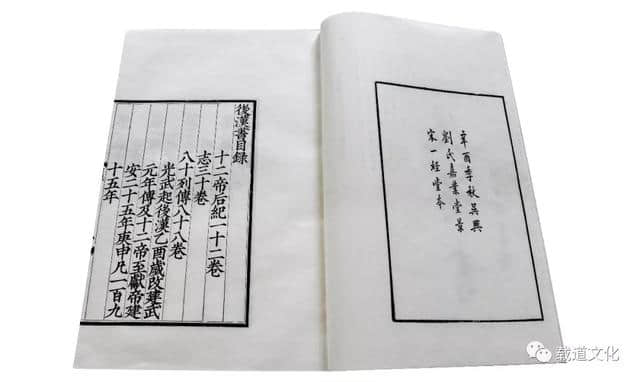 辛酉季秋吳興
劉氏嘉業堂景
宋一經堂本
後漢書目錄
十二帝后紀一十二卷
志三十卷
八十列傳八十八卷
光武起後漢乙酉歲改建武
元年傳及十二帝至獻帝建
安二十五年庚申凡一百九
十五年
载道文化